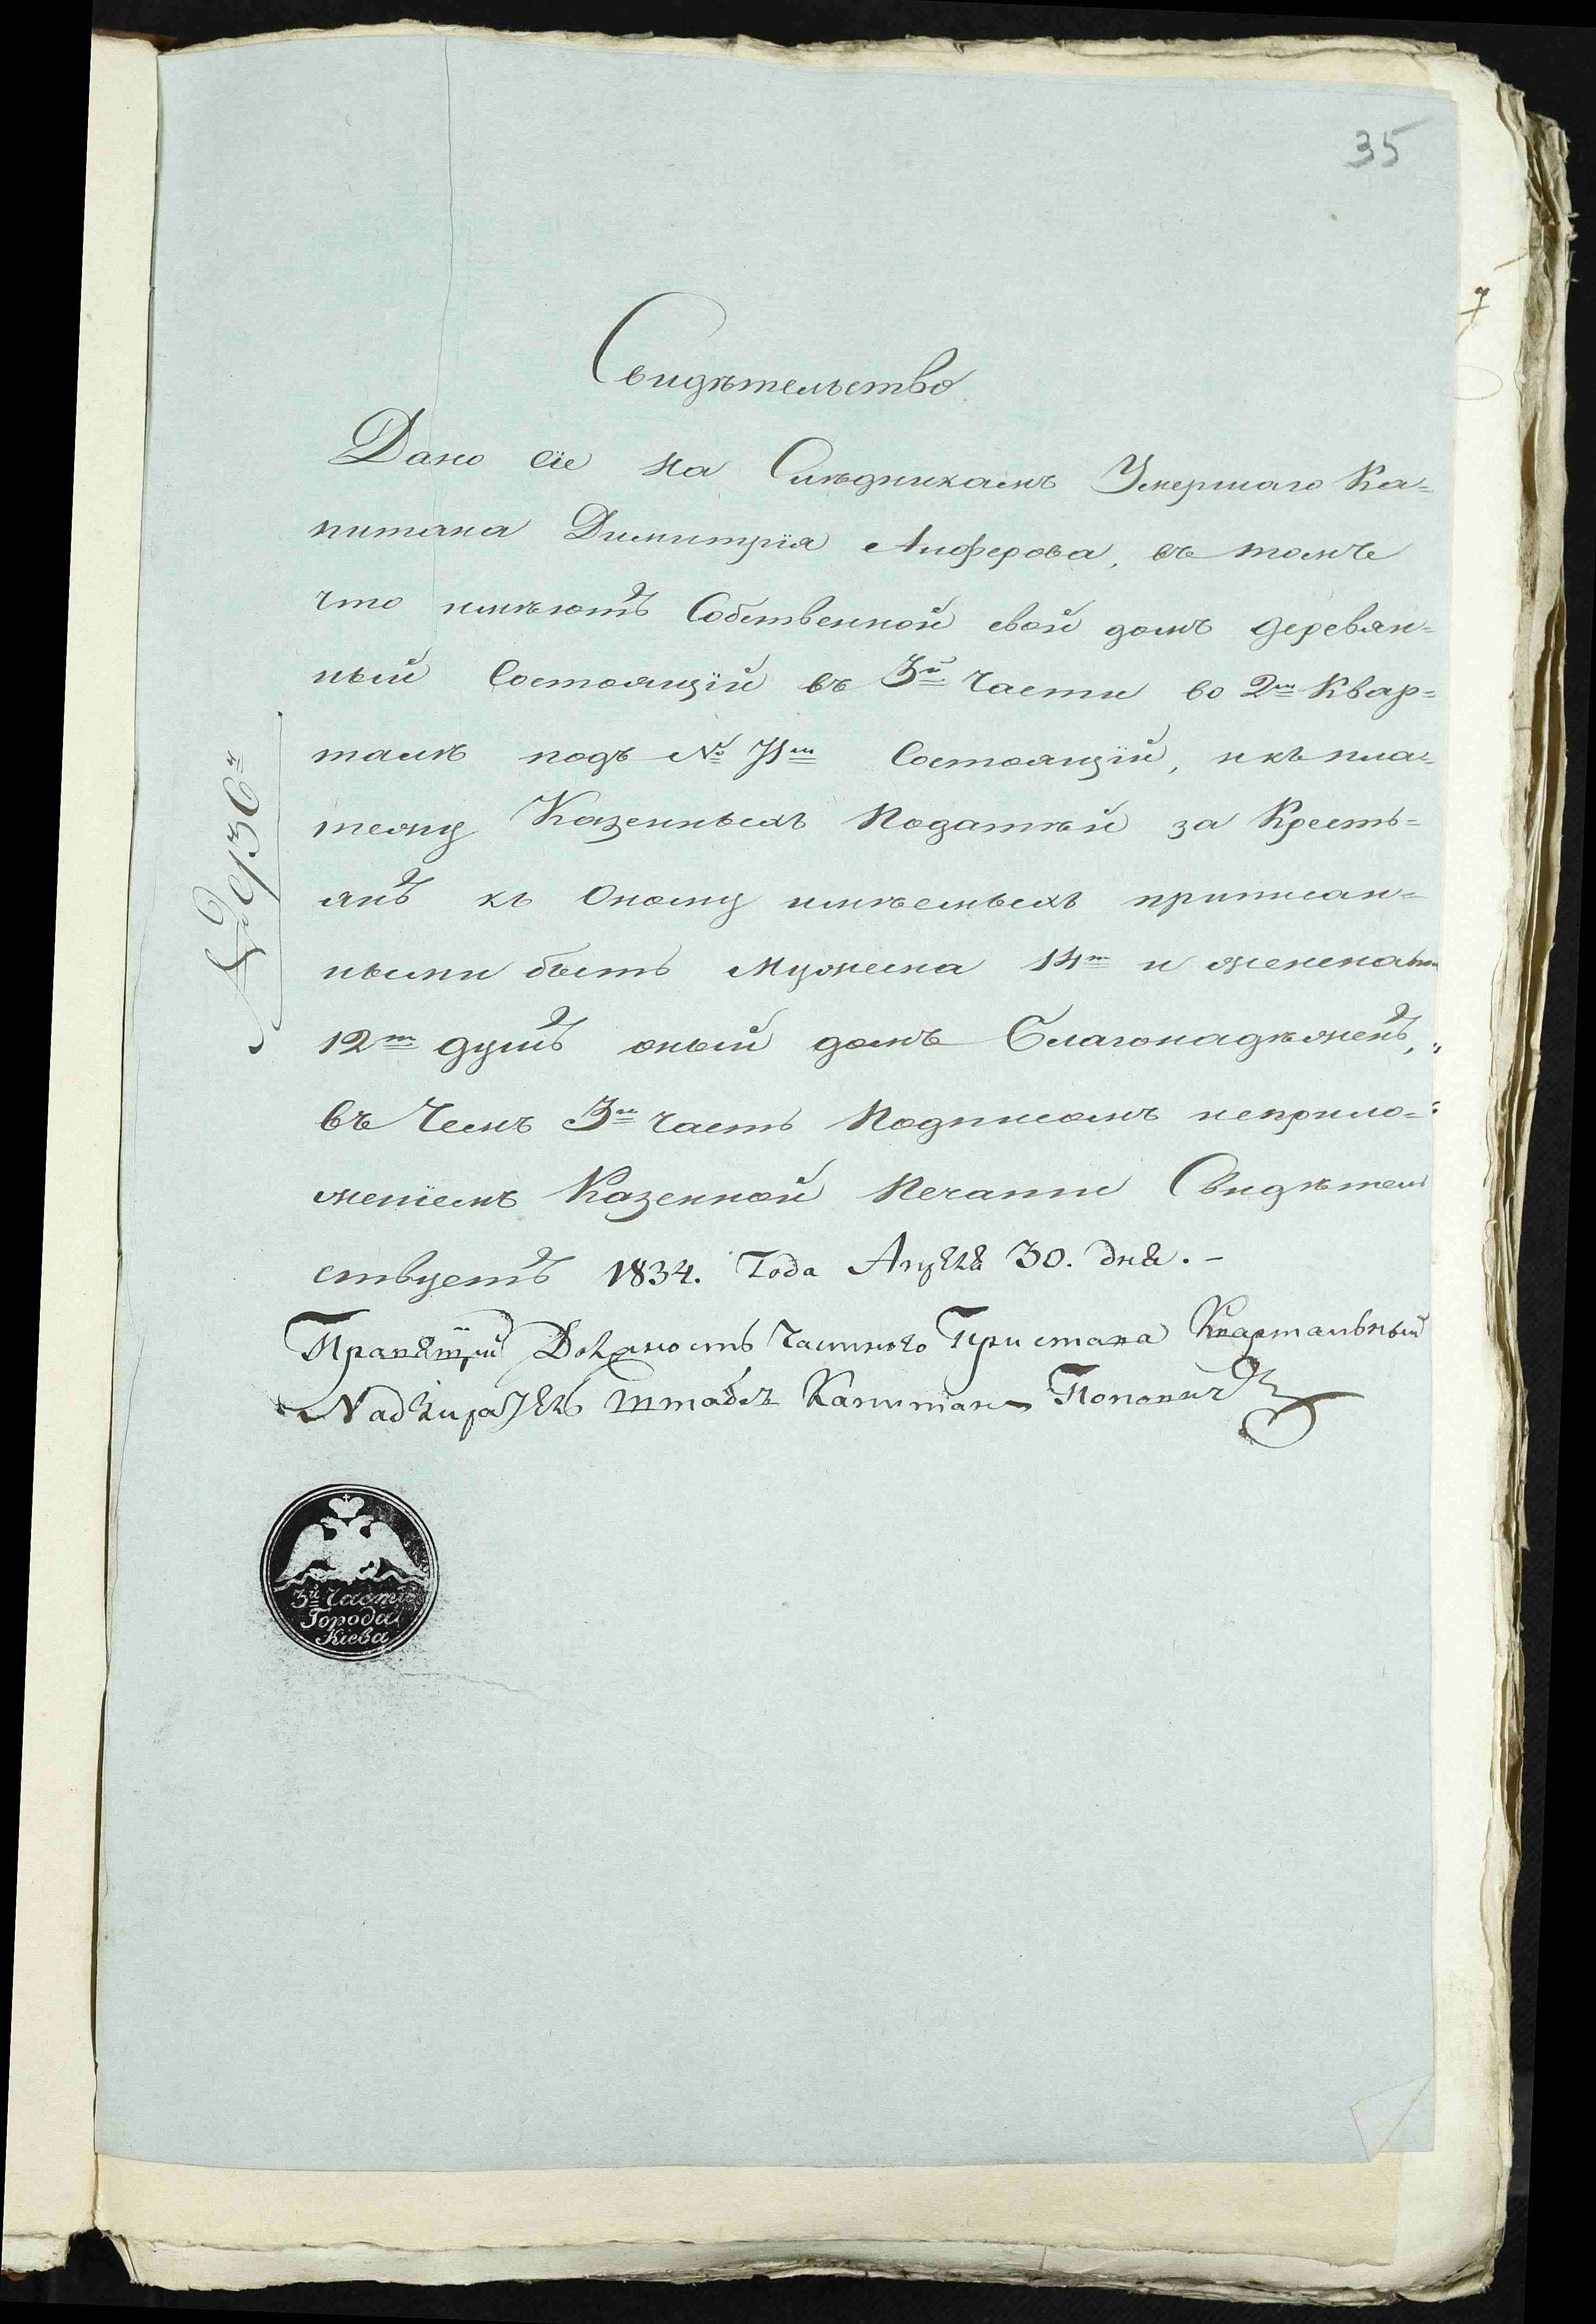 35
Свидѣтельство
Дано сіе на Слѣдникамъ Умершаго Ка=
питана Димитрія Алферова, въ томъ
что имѣютъ Собственной свой домъ деревян=
ный Состоящій въ 3й части во 2м Квар=
талѣ подъ № 71м Состоящій, икъ пла=
тежу Казенныхъ Податѣй за Кресть=
янъ къ Оному имѣемыхъ приписан=
ными быть Мужеска 14т и женска
12т душъ оный домъ Благонадѣженъ,
въ Чемъ 3я часть Подписомъ исприло=
женіемъ Казенной Печати Свидѣтель
ствуетъ 1834. Года Апреля 30. дня.-
Правящій Должность Частного Пристава Квартальный
Надзиратель Штабсъ Капитан Попович
3й Части
Города
Кіева